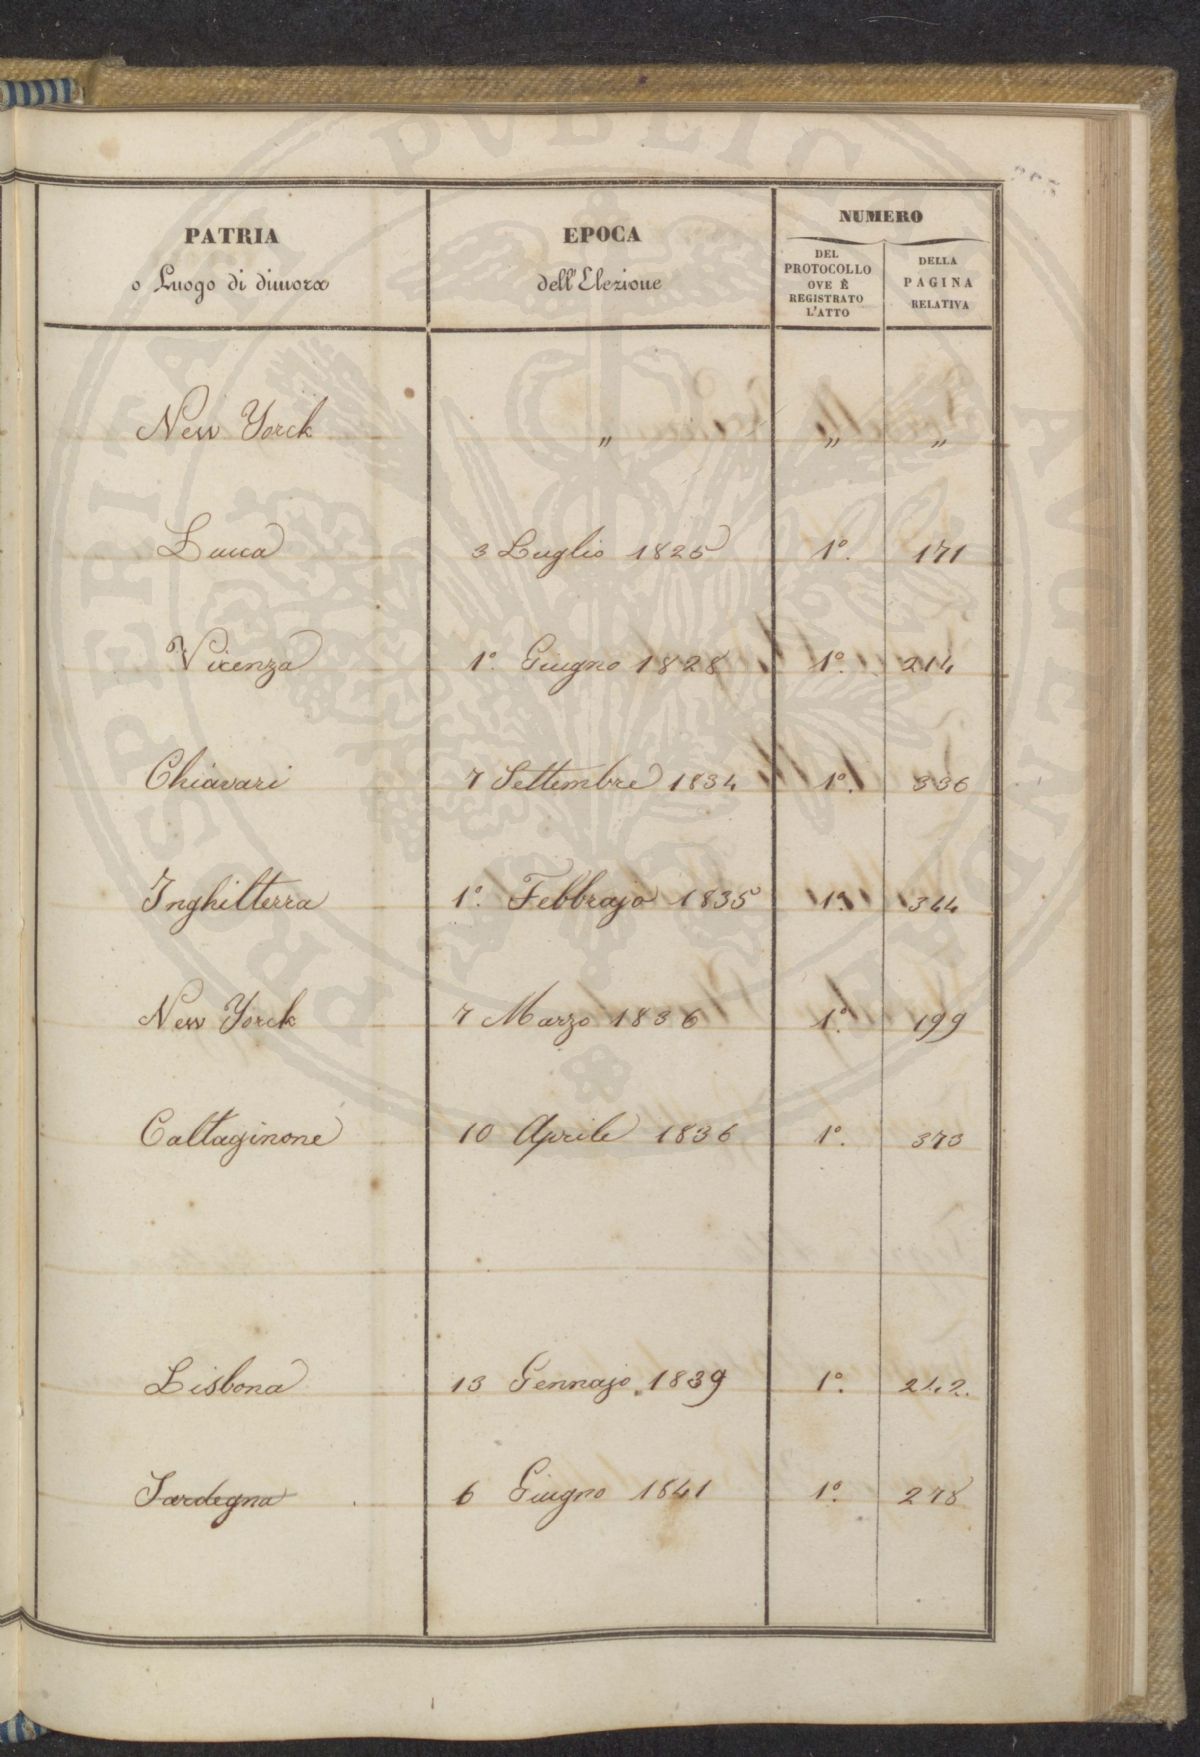 PATRIA
o Luogo di dimora
EPOCA
dell'Elezione
NUMERO
DEL
PROTOCOLLO
OVE È
REGISTRATO
L'ATTO
DELLA
PAGINA
RELATIVA
New Yorck " " "
Lucca 3 Luglio 1825 1º. 171
Vicenza 1º. Giugno 1828 1º. 214
Chiavari 7 Settembre 1834 1º. 336
Inghilterra 1º. Febbrajo 1835 1º. 344
New Yorck 7 Marzo 1836 1º. 199
Caltaginone 10 Aprile 1836 1º. 373
Lisbona 13 Gennajo 1839 1º. 242.
Sardegna 6 Giugno 1841 1º. 278
PROSPERITATI PVBLICAE AVGENDAE